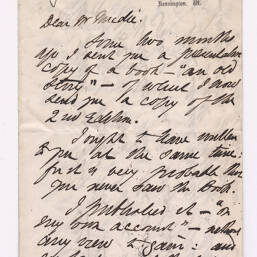 Kennington, W.
Dear Mr Mudie.
Some two months
ago I sent you a presentation
copy of a book — "an old
story" — of which I now
send you a copy of the
2nd Edition.
I ought to have written
to you at the same time:
for it is very probable that
you never saw the Book.
I published it — "on
my own account" — without
any view to gain: and